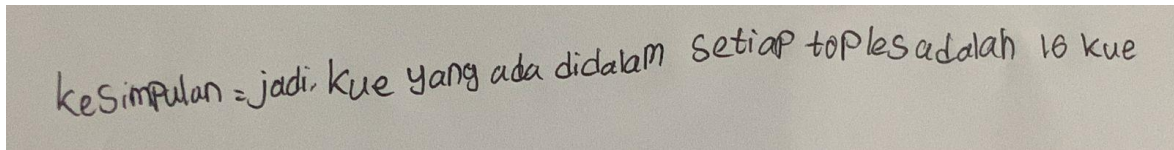 kesimpulan = jadi, kue yang ada didalam setiap toples adalah 16 kue